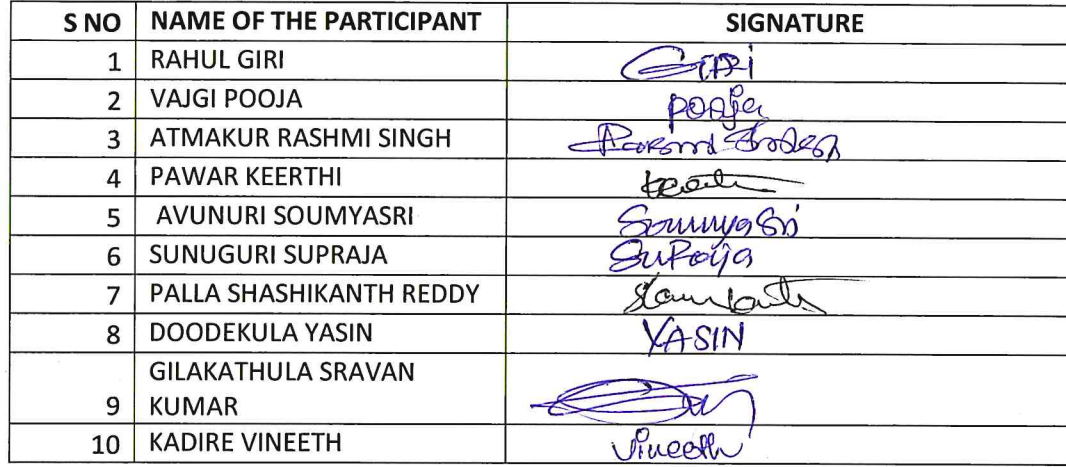 S NO NAME OF THE PARTICIPANT SIGNATURE
1 RAHUL GIRI GIRI
2 VAJGI POOJA POOja
3 ATMAKUR RASHMI SINGH
4 PAWAR KEERTHI
5 AVUNURI SOUMYASRI SoumyaSri
6 SUNUGURI SUPRAJA
7 PALLA SHASHIKANTH REDDY
8 DOODEKULA YASIN YASIN
GILAKATHULA SRAVAN
9 KUMAR
10 KADIRE VINEETH Vineeth